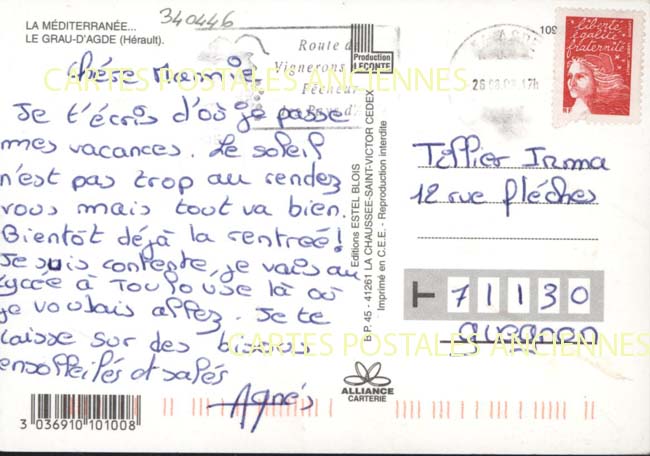 LA MÉDITERRANÉE...
LE GRAU-D'AGDE (Hérault).
340446
Route d
Vignerons
Pêcheur
Production
LECONTE
109
26 17h
liberté
égalité
fraternité
CARTES POSTALES ANCIENNES
Chère Mamie
Je t'écris d'où je passe
mes vacances. Le soleil
n'est pas trop au rendez
vous mais tout va bien.
Bientôt déjà la rentreé!
Je suis contente, je vais au
lycée à Toulouse là où
je voulais allez. Je te
laisse sur des bisous
ensolleilés et salés
Agnés
Editions ESTEL BLOIS
B.P. 45 - 41261 LA CHAUSSEE-SAINT-VICTOR CEDEX
Imprimé en C.E.E. - Reproduction interdite
Tillier Irma
12 rue fléches
71130
Gueugnon
CARTES POSTALES ANCIENNES
ALLIANCE
CARTERIE
3 036910 101008